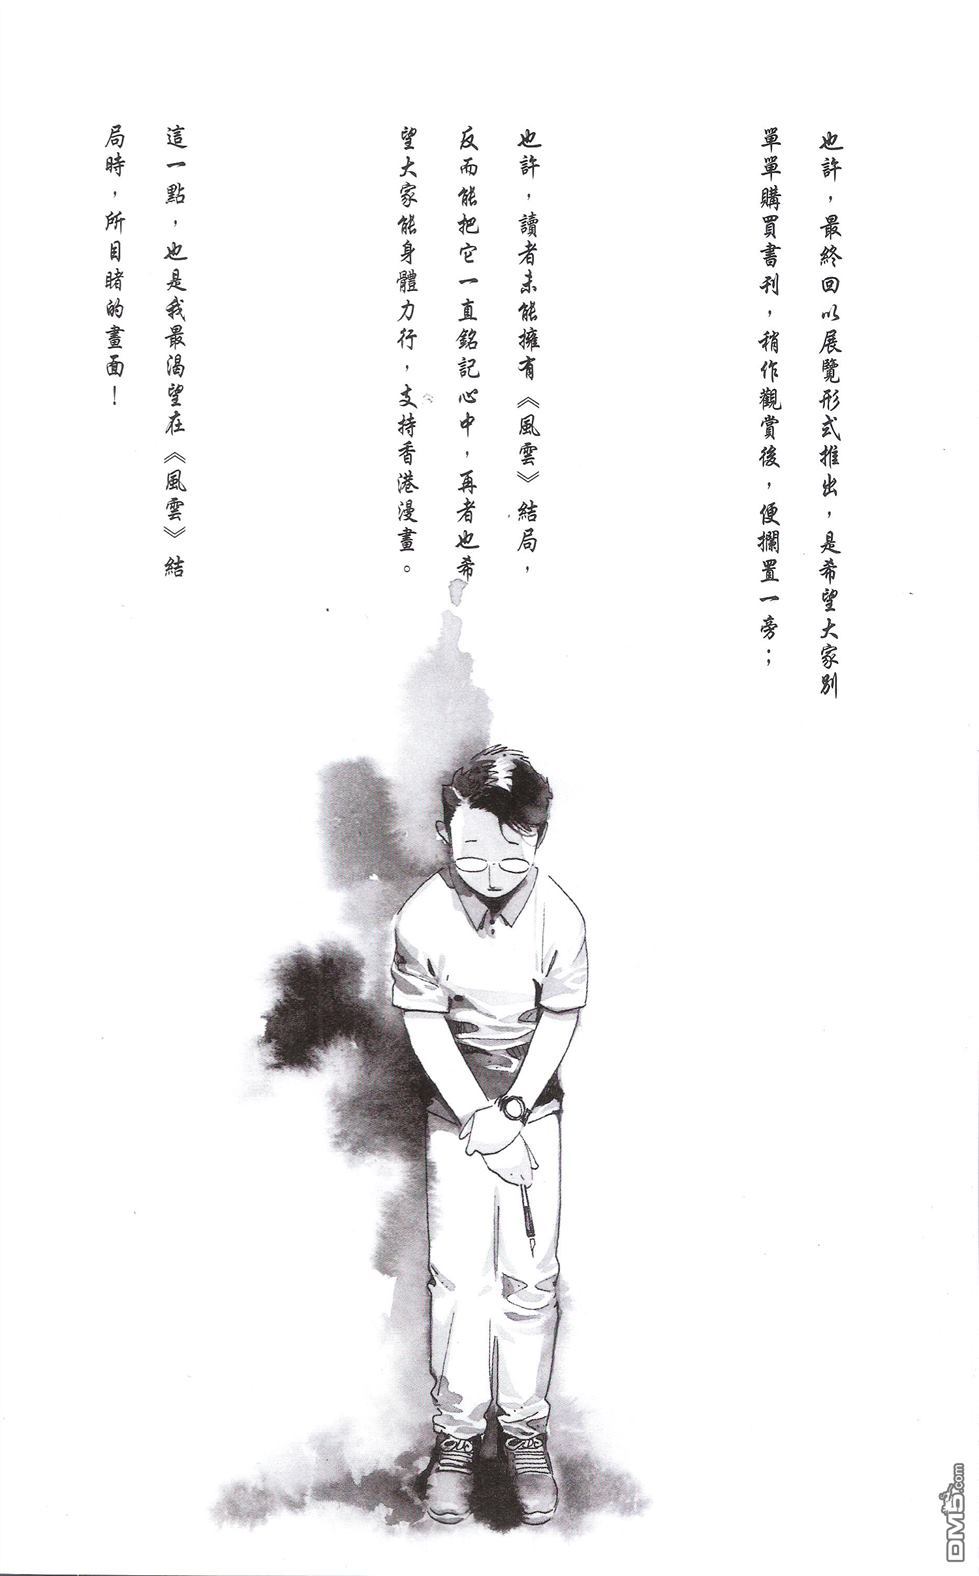 也許，最終回以展覽形式推出，是希望大家別
單單購買書刊，稍作觀賞後，便擱置一旁；
也許，讀者未能擁有《風雲》結局，
反而能把它一直銘記心中，再者也希
望大家能身體力行，支持香港漫畫。
這一點，也是我最渴望在《風雲》結
局時，所目睹的畫面！
DM5.com